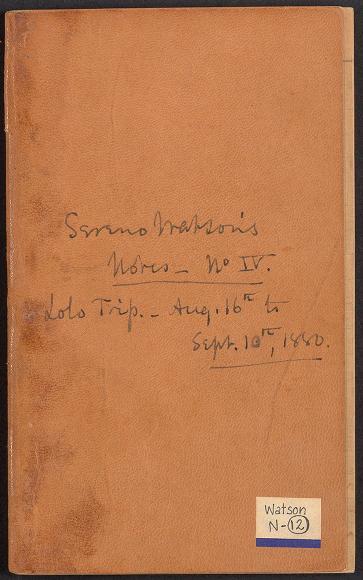 Sereno Watson's
Notes – No IV.
Lolo Trip. – Aug. 16th to
Sept. 10th, 1880.
Watson
N-12